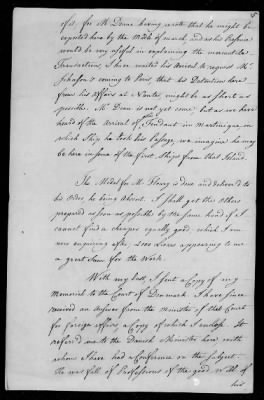 of it for Mr Deane having wrote that he might be
expected here by the Middle of march and as his Presence
would be very useful in explaining the mercantile
Transactions, I have waited his Arrival to request Mr
Johnson's coming to Paris, that his Detention here
from his Affairs at Nantes, might be as short as
possible. Mr Deane is not yet come, but as we have
heard of the Arrival of the Fendant in Martinique, in
which Ship he took his Passage, we imagine he may
be here in some of the first Ships from that Island.
The Medal for Mr Fleury is done and deliver'd to
his Order he being Absent. I shall get the others
prepared as soon as possible by the same hand if I
cannot find a cheaper equally good, which I am
now enquiring after, 1000 Livres appearing to me
a great Sum for the Work.
With my last, I sent a Copy of my
Memorial to the Court of Denmark. I have since
received an Answer from the Minister of that Court
for foreign Affairs, a Copy of which I enclose. It
referr'd me to the Danish Minister here, with
whom I have had a Conference on the Subject.
He was full of Professions of the good Will of
his